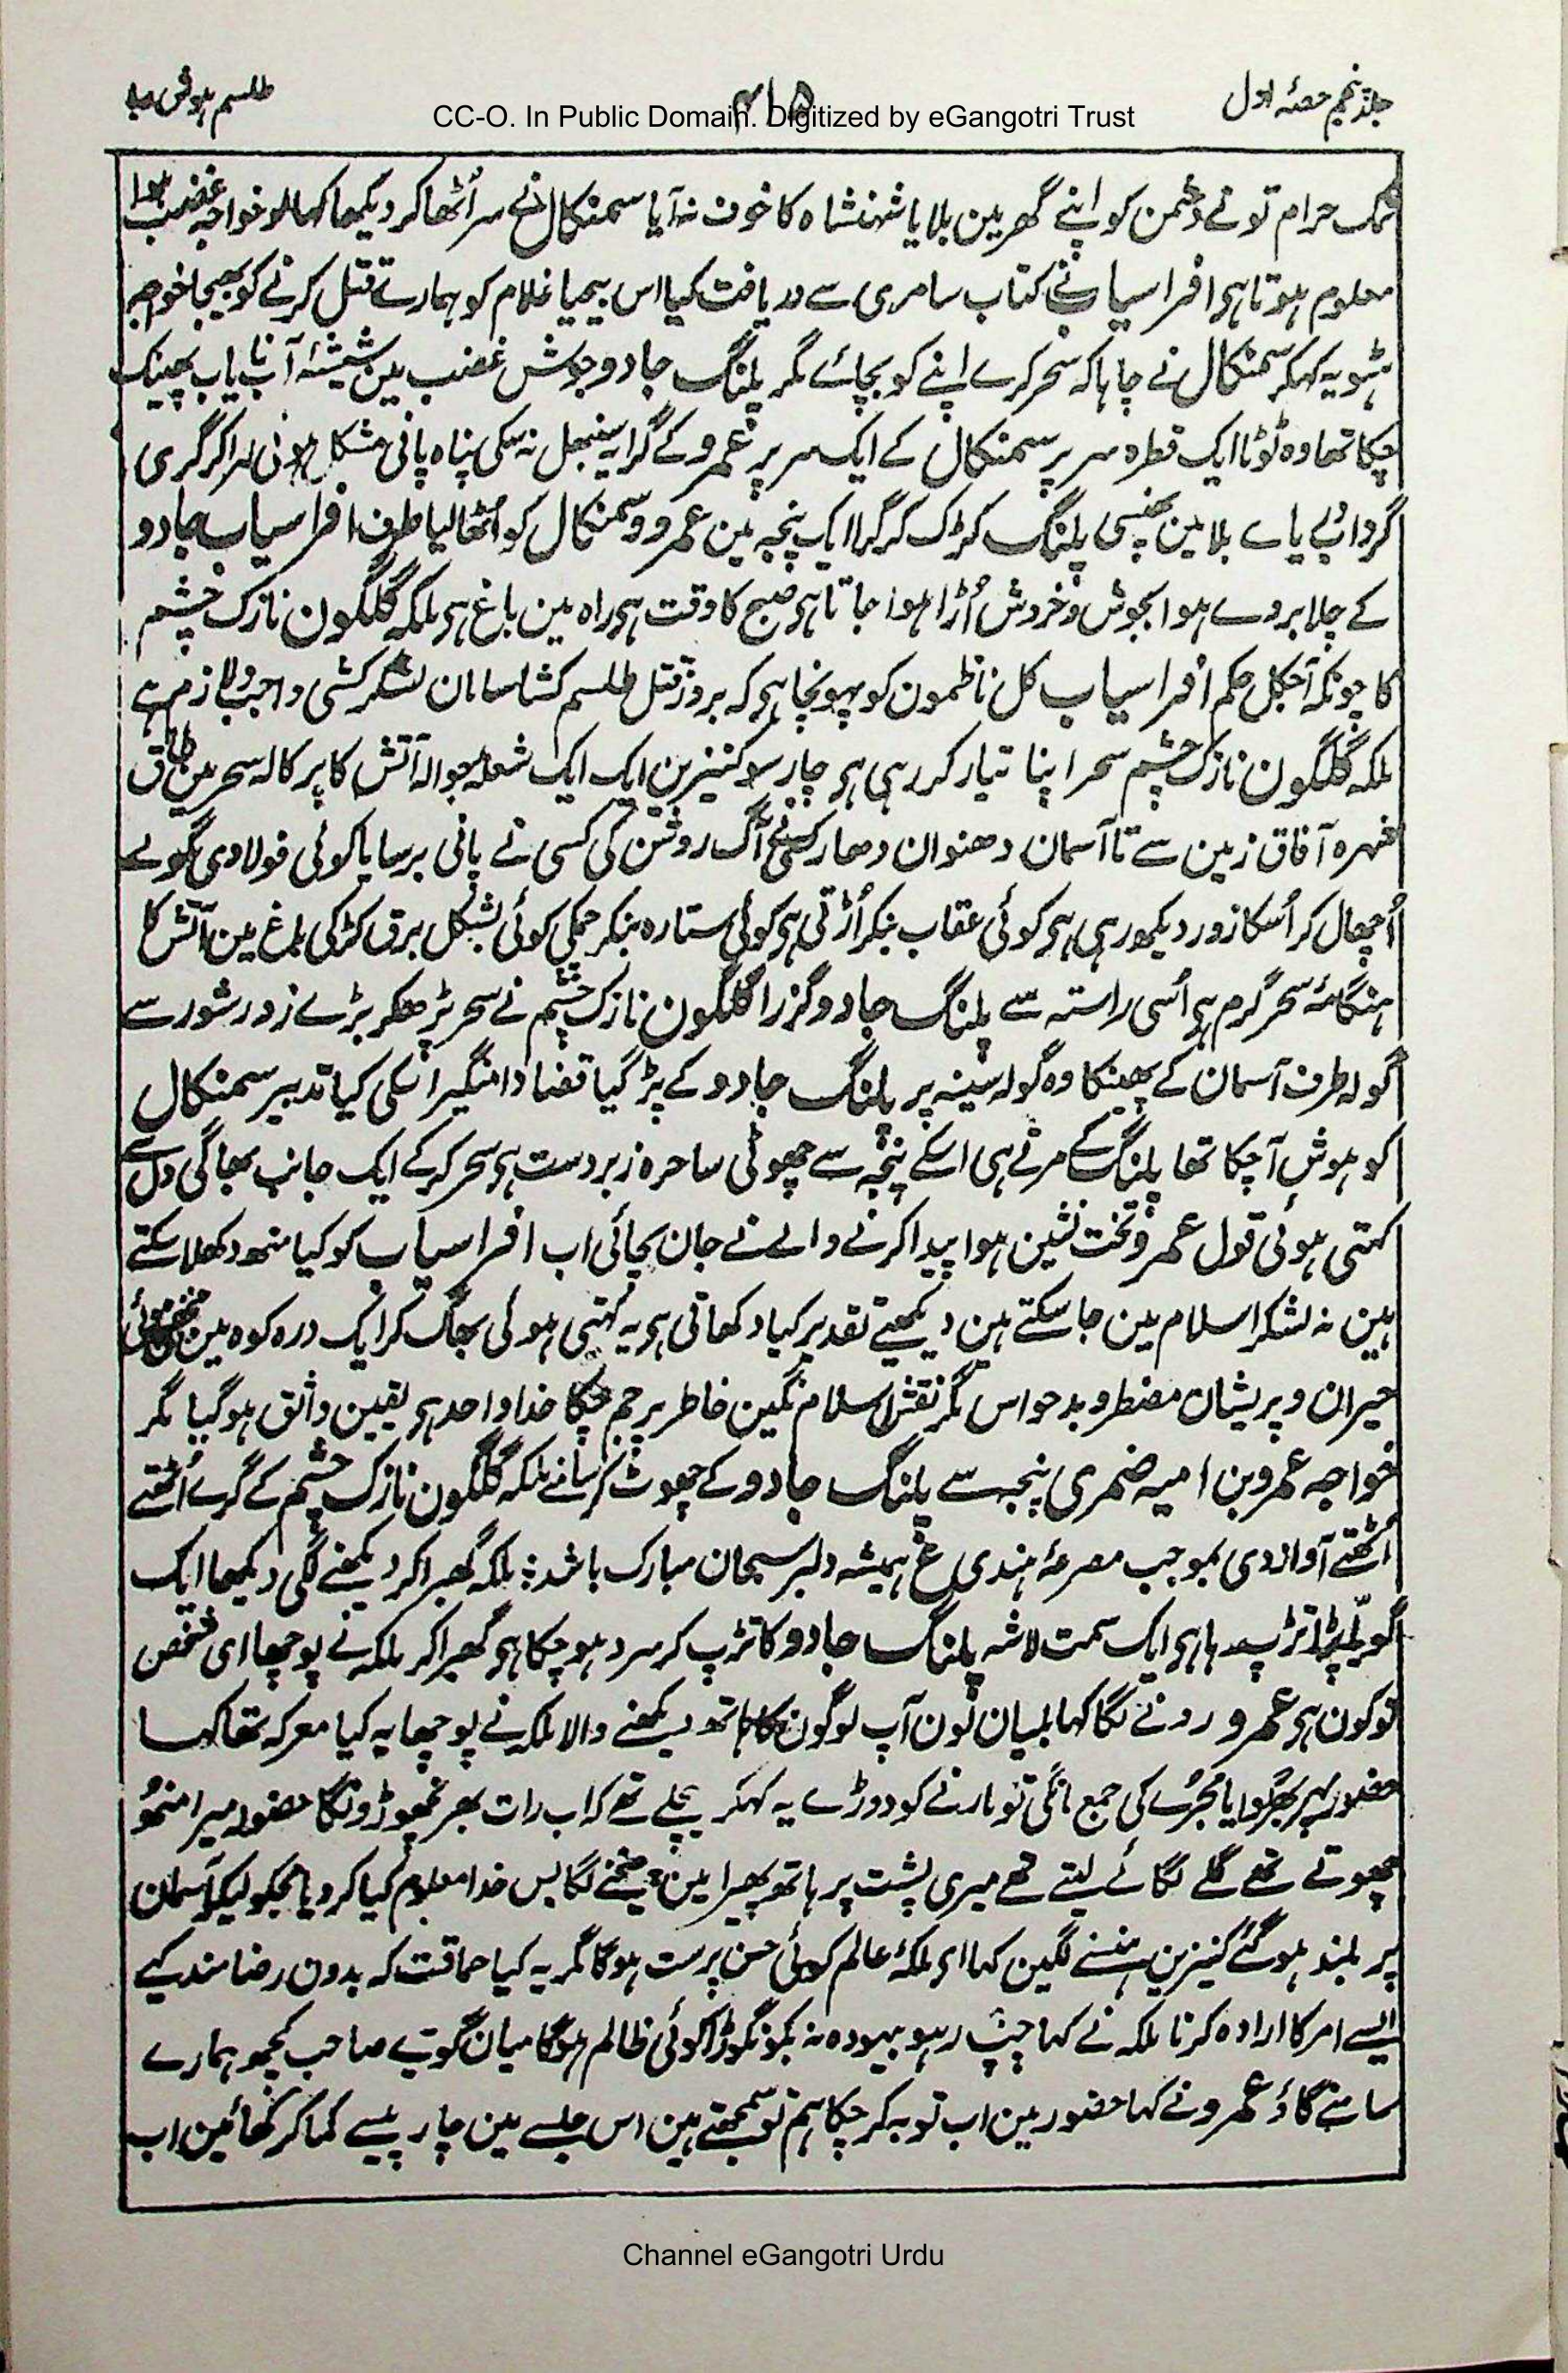 جلد پنجم حصۂ اول
۴۱۵
طلسم ہوش ربا
CC-O. In Public Domain. Digitized by eGangotri Trust
نمک حرام تو نے دشمن کو اپنے گھر مین بلایا شہنشاہ کا خوف نہ آیا سمنکال نے سر اُٹھا کر دیکھا کہا لو خواجہ غضب ہوا
معلوم ہوتا ہی افراسیاب نے کتاب سامری سے دریافت کیا اس بیحیا غلام کو ہمارے قتل کرنے کو بھیجا خواجہ
ہٹو یہ کہکر سمنکال نے چاہا کہ سحر کرے اپنے کو بچائے مگر پلنگ جادو جوش غضب مین شیشۂ آب نایاب پھینک
چکا تھا وہ ٹوٹا ایک قطرہ سر پر سمنکال کے ایک سر پر عمرو کے گرا یہ سنبھل نہ سکی پناہ پانی مشکل ہوئی لہرا کر گری
گرداب بلا مین پھنسی پلنگ کڑک کر گرا ایک پنجہ مین عمرو و سمنکال کو اُٹھا لیا طرف افراسیاب جادو
کے چلا بروے ہوا بجوش و خروش اُڑا ہوا جاتا ہی صبح کا وقت ہی راہ مین باغ ہی ملکہ گلگون نازک چشم
کا چونکہ آجکل حکم افراسیاب کل ناظمون کو پہونچا ہی کہ بروز قتل طلسم کشا سامان لشکر کشی واجب و لازم ہے
ملکہ گلگون نازک چشم سحر اپنا تیار کر رہی ہی چار سو کنیزین ایک ایک شعلہ جوالہ آتش کا پرکالہ سحر مین طاق
شہرہ آفاق زمین سے تا آسمان دھنوان دھار کسی نے آگ روشن کی کسی نے پانی برسایا کوئی فولادی گولے
اُچھال کر اُسکا زور دیکھ رہی ہی کوئی عقاب بنکر اُڑتی ہی کوئی ستارہ بنکر چمکی کوئی بشکل برق کڑکی باغ مین آتش کا
ہنگامۂ سحر گرم ہی اُسی راستہ سے پلنگ جادو گزرا گلگون نازک چشم نے سحر پڑھکر بڑے زور شور سے
گولہ طرف آسمان کے پھینکا وہ گولہ سینہ پر پلنگ جادو کے پڑ گیا قضا دامنگیر اسکی کیا تدبیر سمنکال
کو ہوش آچکا تھا پلنگ کے مرتے ہی اسکے پنجہ سے چھوٹی ساحرہ زبردست ہی سحر کر کے ایک جانب بھاگی دل سے
کہتی ہوئی قول عمرو تخت نشین ہوا پیدا کرنے والے نے جان بچائی اب افراسیاب کو کیا منھ دکھلا سکتے
ہین نہ لشکر اسلام مین جا سکتے ہین دیکھیے تقدیر کیا دکھاتی ہی یہ کہتی ہوئی بھاگ کر ایک درہ کوہ مین مخفی ہوئی
حیران و پریشان مضطر و بدحواس مگر نقش اسلام نگین خاطر پر جم چکا خدا واحد ہی یقین واثق ہو گیا مگر
خواجہ عمرو بن امیہ ضمری پنجہ سے پلنگ جادو کے چھوٹ کر سامنے ملکہ گلگون نازک چشم کے گرے اُٹھتے
اُٹھتے آواز دی بموجب مصرعۂ ہندی ع ہمیشہ دلبر سبحان مبارک باشد ؛ ملکہ گھبرا کر دیکھنے لگی دیکھا ایک
گویّا پڑا تڑپ رہا ہی ایک سمت لاشہ پلنگ جادو کا تڑپ کر سرد ہو چکا ہی گھبرا کر ملکہ نے پوچھا ای شخص
تو کون ہی عمرو رونے لگا کہا میان ٹون آپ لوگون کا ہاتھ دیکھنے والا ملکہ نے پوچھا یہ کیا معرکہ تھا کہا
حضور بھڑوا یا مجرے کی جمع مانگی تو مارنے کو دوڑے یہ کہکر چلے تھے کہ اب رات بھر نچھوڑونگا حضور میرا منھ
چھوتے تھے گلے لگائے لیتے تھے میری پشت پر ہاتھ پھیرا مین چیخنے لگا بس خدا معلوم کیا کر دیا مجکو لیکر آسمان
پر بلند ہو گئے کنیزین ہنسنے لگین کہا ای ملکۂ عالم کوئی حسن پرست ہو گا مگر یہ کیا حماقت کہ بدون رضامندیکے
ایسے امر کا ارادہ کرنا ملکہ نے کہا چپ رہو بیہودہ نہ بکو نگوڑا کوئی ظالم ہو گا میان گویے صاحب کچھ ہمارے
سامنے گاؤ عمرو نے کہا حضور مین اب توبہ کر چکا ہم تو سمجھتے ہین اس جلسے مین چار پیسے کما کر کھائین اب
Channel eGangotri Urdu